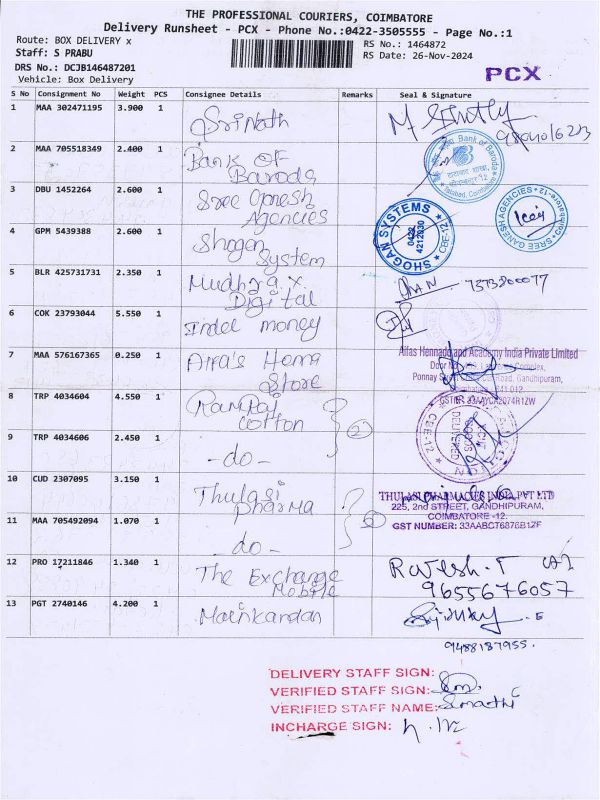 THE PROFESSIONAL COURIERS, COIMBATORE
Delivery Runsheet - PCX - Phone No.:0422-3505555 - Page No.:1
Route: BOX DELIVERY x
Staff: S PRABU
DRS No.: DCJB146487201
Vehicle: Box Delivery
RS No.: 1464872
RS Date: 26-Nov-2024
PCX
S No Consignment No Weight PCS Consignee Details Remarks Seal & Signature
1 MAA 302471195 3.900 1 Srinath
2 MAA 705518349 2.400 1 Bank Of
Baroda
3 DBU 1452264 2.600 1 Sree Ganesh
Agencies
SREE GANESH AGENCIES
4 GPM 5439388 2.600 1 Shogan
System
SHOGAN SYSTEMS
0422
4212930
CBE-12
5 BLR 425731731 2.350 1 Mudhra x
Digital
7373800077
6 COK 23793044 5.550 1 Indel money
7 MAA 576167365 0.250 1 Alfa's Home
Store
Alfas Hennado and Academy India Private Limited
Road, Gandhipuram,
GSTIN: 33AAYCA2074R1ZW
8 TRP 4034604 4.550 1 Ramraj
Cotton
2
CBE-12
9 TRP 4034606 2.450 1 - do -
10 CUD 2307095 3.150 1 Thulasi
Pharma
THULASI PHARMACIES INDIA PVT LTD
225, 2nd STREET, GANDHIPURAM,
COIMBATORE -12.
GST NUMBER: 33AABCT6876B1ZF
11 MAA 705492094 1.070 1 - do -
12 PRO 17211846 1.340 1 The Exchange
Mobile
9655676057
13 PGT 2740146 4.200 1 Manikandan
9488187955.
DELIVERY STAFF SIGN:
VERIFIED STAFF SIGN:
VERIFIED STAFF NAME:
INCHARGE SIGN: